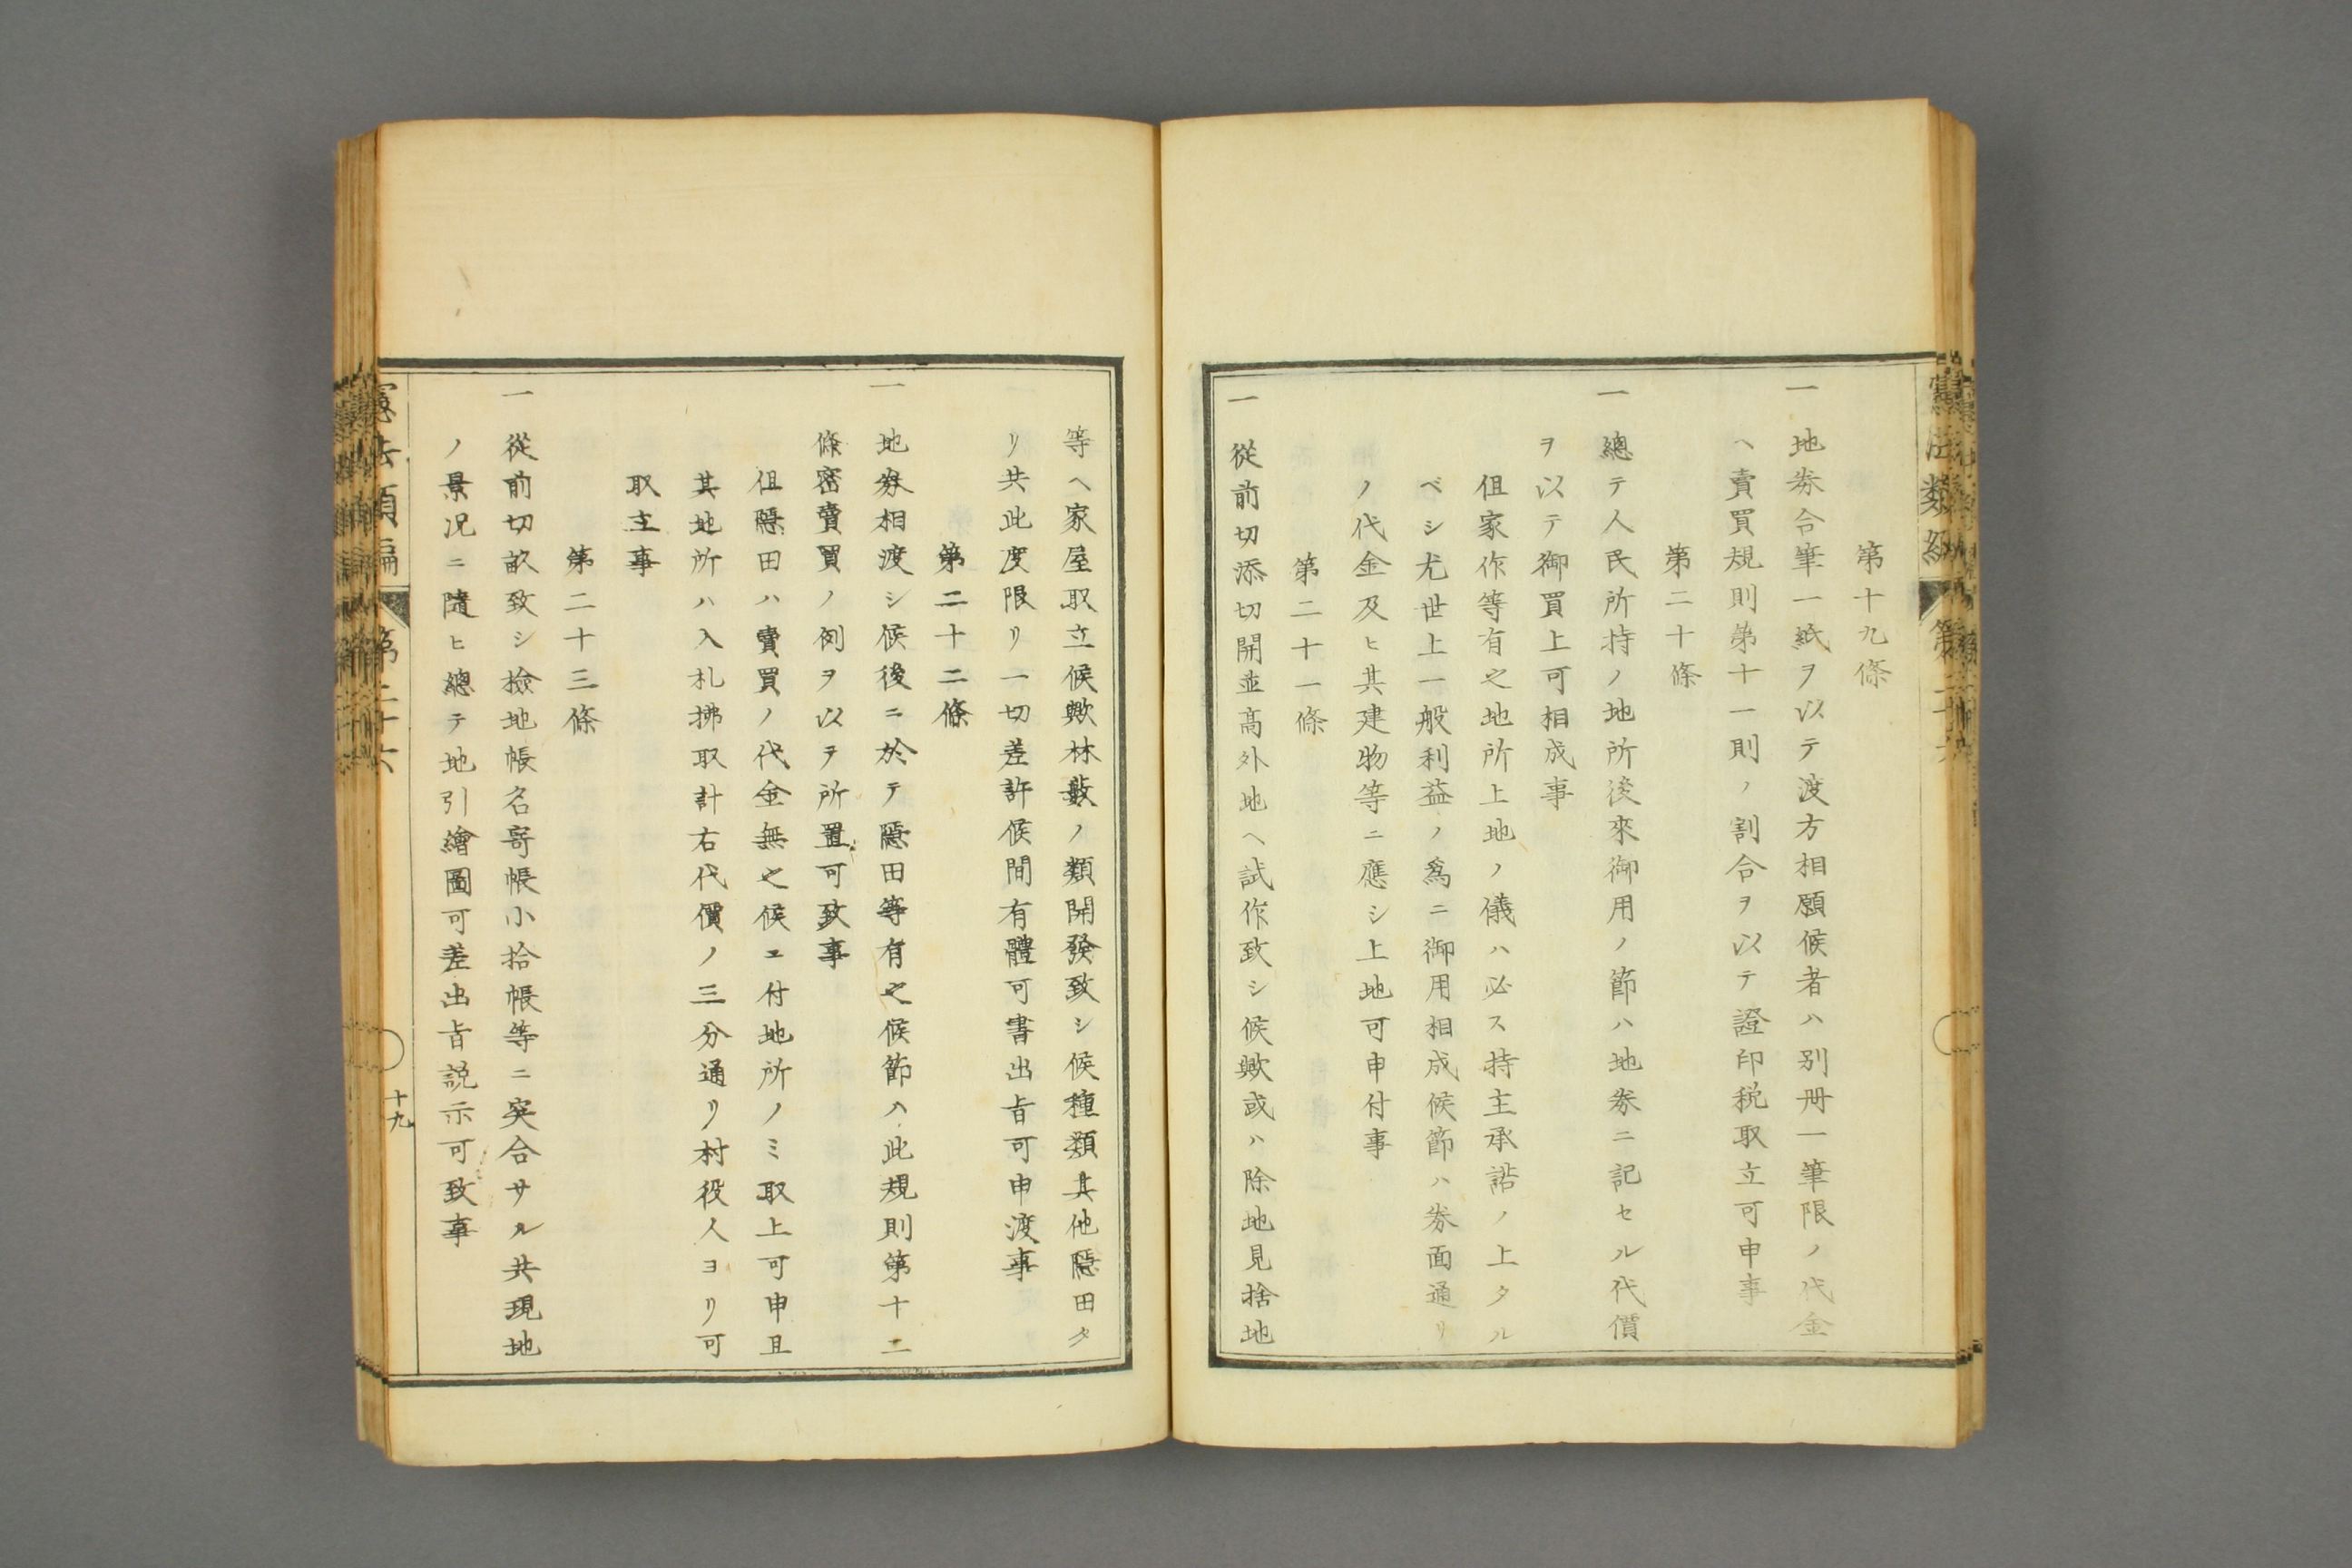 第十九條
一 地券合筆一紙ヲ以テ渡方相願候者ハ別冊一筆限ノ代金
ヘ賣買規則第十一則ノ割合ヲ以テ證印税取立可申事
第二十條
一 總テ人民所持ノ地所後來御用ノ節ハ地券ニ記セル代價
ヲ以テ御買上可相成事
伹家作等有之地所上地ノ儀ハ必ス持主承諾ノ上タル
ベシ尤世上一般利益ノ爲ニ御用相成候節ハ券面通リ
ノ代金及ヒ其建物等ニ應シ上地可申付事
第二十一條
一 從前切添切開並高外地ヘ試作致シ候歟或ハ除地見捨地
等ヘ家屋取立候歟林藪ノ類開發致シ候種類其他隱田タ
リ共此度限リ一切差許候間有體可書出旨可申渡事
第二十二條
一 地券相渡シ候後ニ於テ隱田等有之候節ハ此規則第十二
條密賣買ノ例ヲ以ヲ所置可致事
伹隱田ハ賣買ノ代金無之候ニ付地所ノミ取上可申且
其地所ハ入札拂取計右代價ノ三分通リ村役人ヨリ可
取立事
第二十三條
一 從前切畝致シ檢地帳名寄帳小拾帳等ニ突合サル共現地
ノ景况ニ隨ヒ總テ地引繪圖可差出旨説示可致事
憲法類編 第二十六
十九